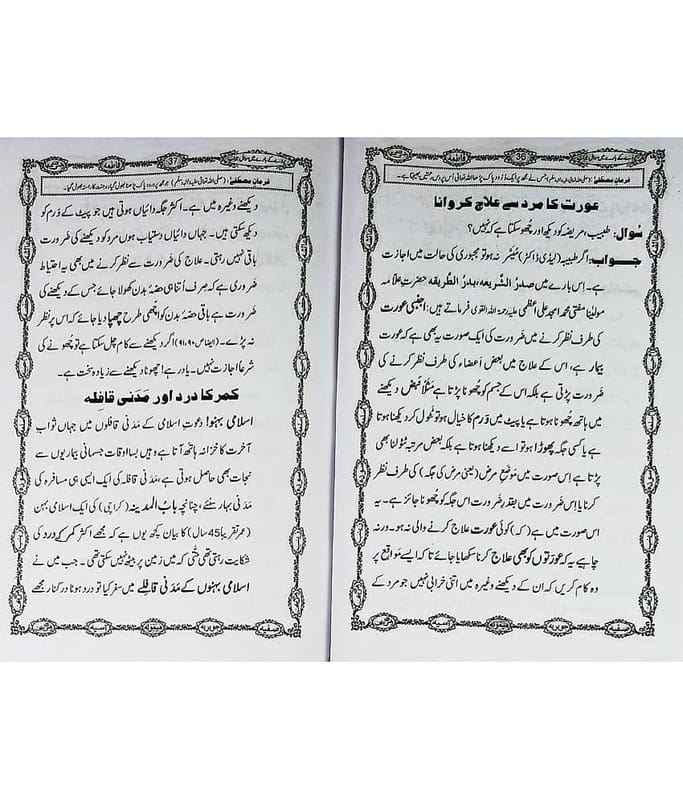 36
فاطمہ
فرمانِ مصطفٰے: (صلی اللہ تعالیٰ علیہ واٰلہ وسلم) جس نے مجھ پر ایک دُرُودِ پاک پڑھا اللہ تعالیٰ اُس پر دس رحمتیں بھیجتا ہے۔
عورت کا مرد سے علاج کروانا
سُوال: طبیب، مریضہ کو دیکھ اور چُھو سکتا ہے کہ نہیں؟
جواب: اگر طبیبہ (لیڈی ڈاکٹر) مُیَسَّر نہ ہو تو مجبوری کی حالت میں اجازت
ہے۔ اِس بارے میں صدرُ الشَّریعہ، بدرُ الطَّریقہ حضرتِ علّامہ
مولیٰنا مفتی محمد امجد علی اعظمی علیہ رحمۃ اللہ القوی فرماتے ہیں: اجنبی عورت
کی طرف نظر کرنے میں ضَرورت کی ایک صورت یہ بھی ہے کہ عورت
بیمار ہے، اس کے علاج میں بعض اَعضاء کی طرف نظر کرنے کی
ضَرورت پڑتی ہے بلکہ اس کے جسم کو چُھونا پڑتا ہے مَثَلًا نبض دیکھنے
میں ہاتھ چُھونا ہوتا ہے یا پیٹ میں وَرَم کا خیال ہو تو ٹٹول کر دیکھنا ہوتا
ہے یا کسی جگہ پھوڑا ہو تو اسے دیکھنا ہوتا ہے بلکہ بعض مرتبہ ٹٹولنا بھی
پڑتا ہے اِس صورت میں مَوضَعِ مرض (یعنی مرض کی جگہ) کی طرف نظر
کرنا یا اِس ضَرورت میں بقدرِ ضَرورت اس جگہ کو چُھونا جائز ہے۔ یہ
اس صورت میں ہے (کہ) کوئی عورت علاج کرنے والی نہ ہو۔ ورنہ
چاہیے یہ کہ عورَتوں کو بھی علاج کرنا سکھایا جائے تاکہ ایسے مَواقع پر
وہ کام کریں کہ ان کے دیکھنے وغیرہ میں اتنی خرابی نہیں جو مرد کے
صفیہ جویریہ میمونہ آسیہ
37
فاطمہ
فرمانِ مصطفٰے: (صلی اللہ تعالیٰ علیہ واٰلہ وسلم) جو مجھ پر دُرُودِ پاک پڑھنا بھول گیا وہ جنت کا راستہ بھول گیا۔
دیکھنے وغیرہ میں ہے۔ اکثر جگہ دائیاں ہوتی ہیں جو پیٹ کے وَرَم کو
دیکھ سکتی ہیں۔ جہاں دائیاں دستیاب ہوں مرد کو دیکھنے کی ضَرورت
باقی نہیں رہتی۔ علاج کی ضَرورت سے نظر کرنے میں بھی یہ احتیاط
ضَروری ہے کہ صِرف اُتنا ہی حصّۂ بدن کھولا جائے جس کے دیکھنے کی
ضَرورت ہے باقی حصّۂ بدن کو اچّھی طرح چھپا دیا جائے کہ اس پر نظر
نہ پڑے۔ (ایضاً ص ۹۰، ۹۱) اگر دیکھنے سے کام چل سکتا ہے تو چُھونے کی
شرعاً اجازت نہیں۔ یاد رہے! چھونا دیکھنے سے زیادہ سخت ہے۔
کمر کا درد اور مَدَنی قافِلہ
اسلامی بہنو! دعوتِ اسلامی کے مَدَنی قافلوں میں جہاں ثوابِ
آخرت کا خزانہ ہاتھ آتا ہے وہیں بسا اوقات جسمانی بیماریوں سے
نَجات بھی حاصل ہوتی ہے، مَدَنی قافلہ کی ایک ایسی ہی مسافِرہ کی
مَدَنی بہار سنئے، چنانچہ بابُ المدینہ (کراچی) کی ایک اسلامی بہن
(عمر تقریباً 45 سال) کا بیان کچھ یوں ہے کہ مجھے اکثر کمر کے درد کی
شکایت رہتی تھی حتّٰی کہ میں زمین پر بیٹھ نہیں سکتی تھی۔ جب میں نے
اسلامی بہنوں کے مَدَنی قافِلے میں سفر کیا تو درد ہونا درکنار مجھے
صفیہ جویریہ میمونہ آسیہ